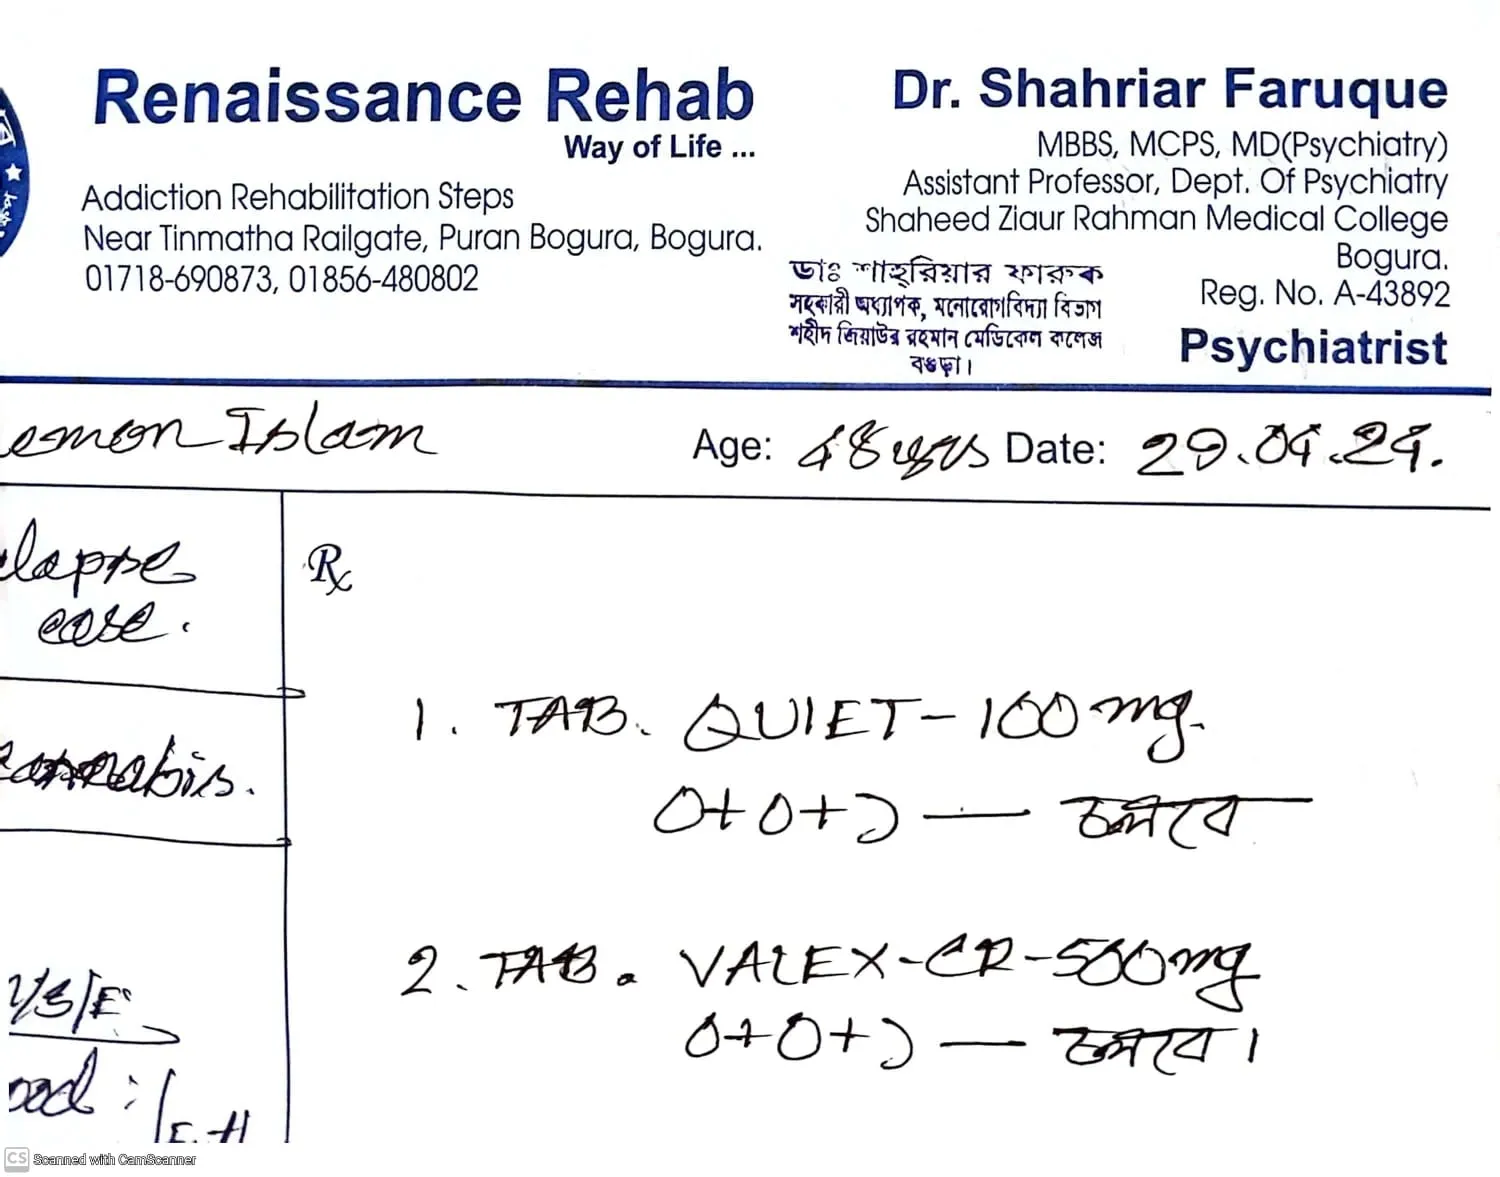 Renaissance Rehab
Way of Life ...
Addiction Rehabilitation Steps
Near Tinmatha Railgate, Puran Bogura, Bogura.
01718-690873, 01856-480802
Dr. Shahriar Faruque
MBBS, MCPS, MD(Psychiatry)
Assistant Professor, Dept. Of Psychiatry
Shaheed Ziaur Rahman Medical College
Bogura.
Reg. No. A-43892
Psychiatrist
ডাঃ শাহ্‌রিয়ার ফারুক
সহকারী অধ্যাপক, মনোরোগবিদ্যা বিভাগ
শহীদ জিয়াউর রহমান মেডিকেল কলেজ
বগুড়া।
emon Islam Age: 48 yrs Date: 29.04.24.
elapse
case.
cannabis.
M/S/E
ood :
Rx
1. TAB. QUIET - 100 mg.
0+0+১ — চলবে
2. TAB. VALEX-CR-500mg
0+0+১ — চলবে।
CS Scanned with CamScanner